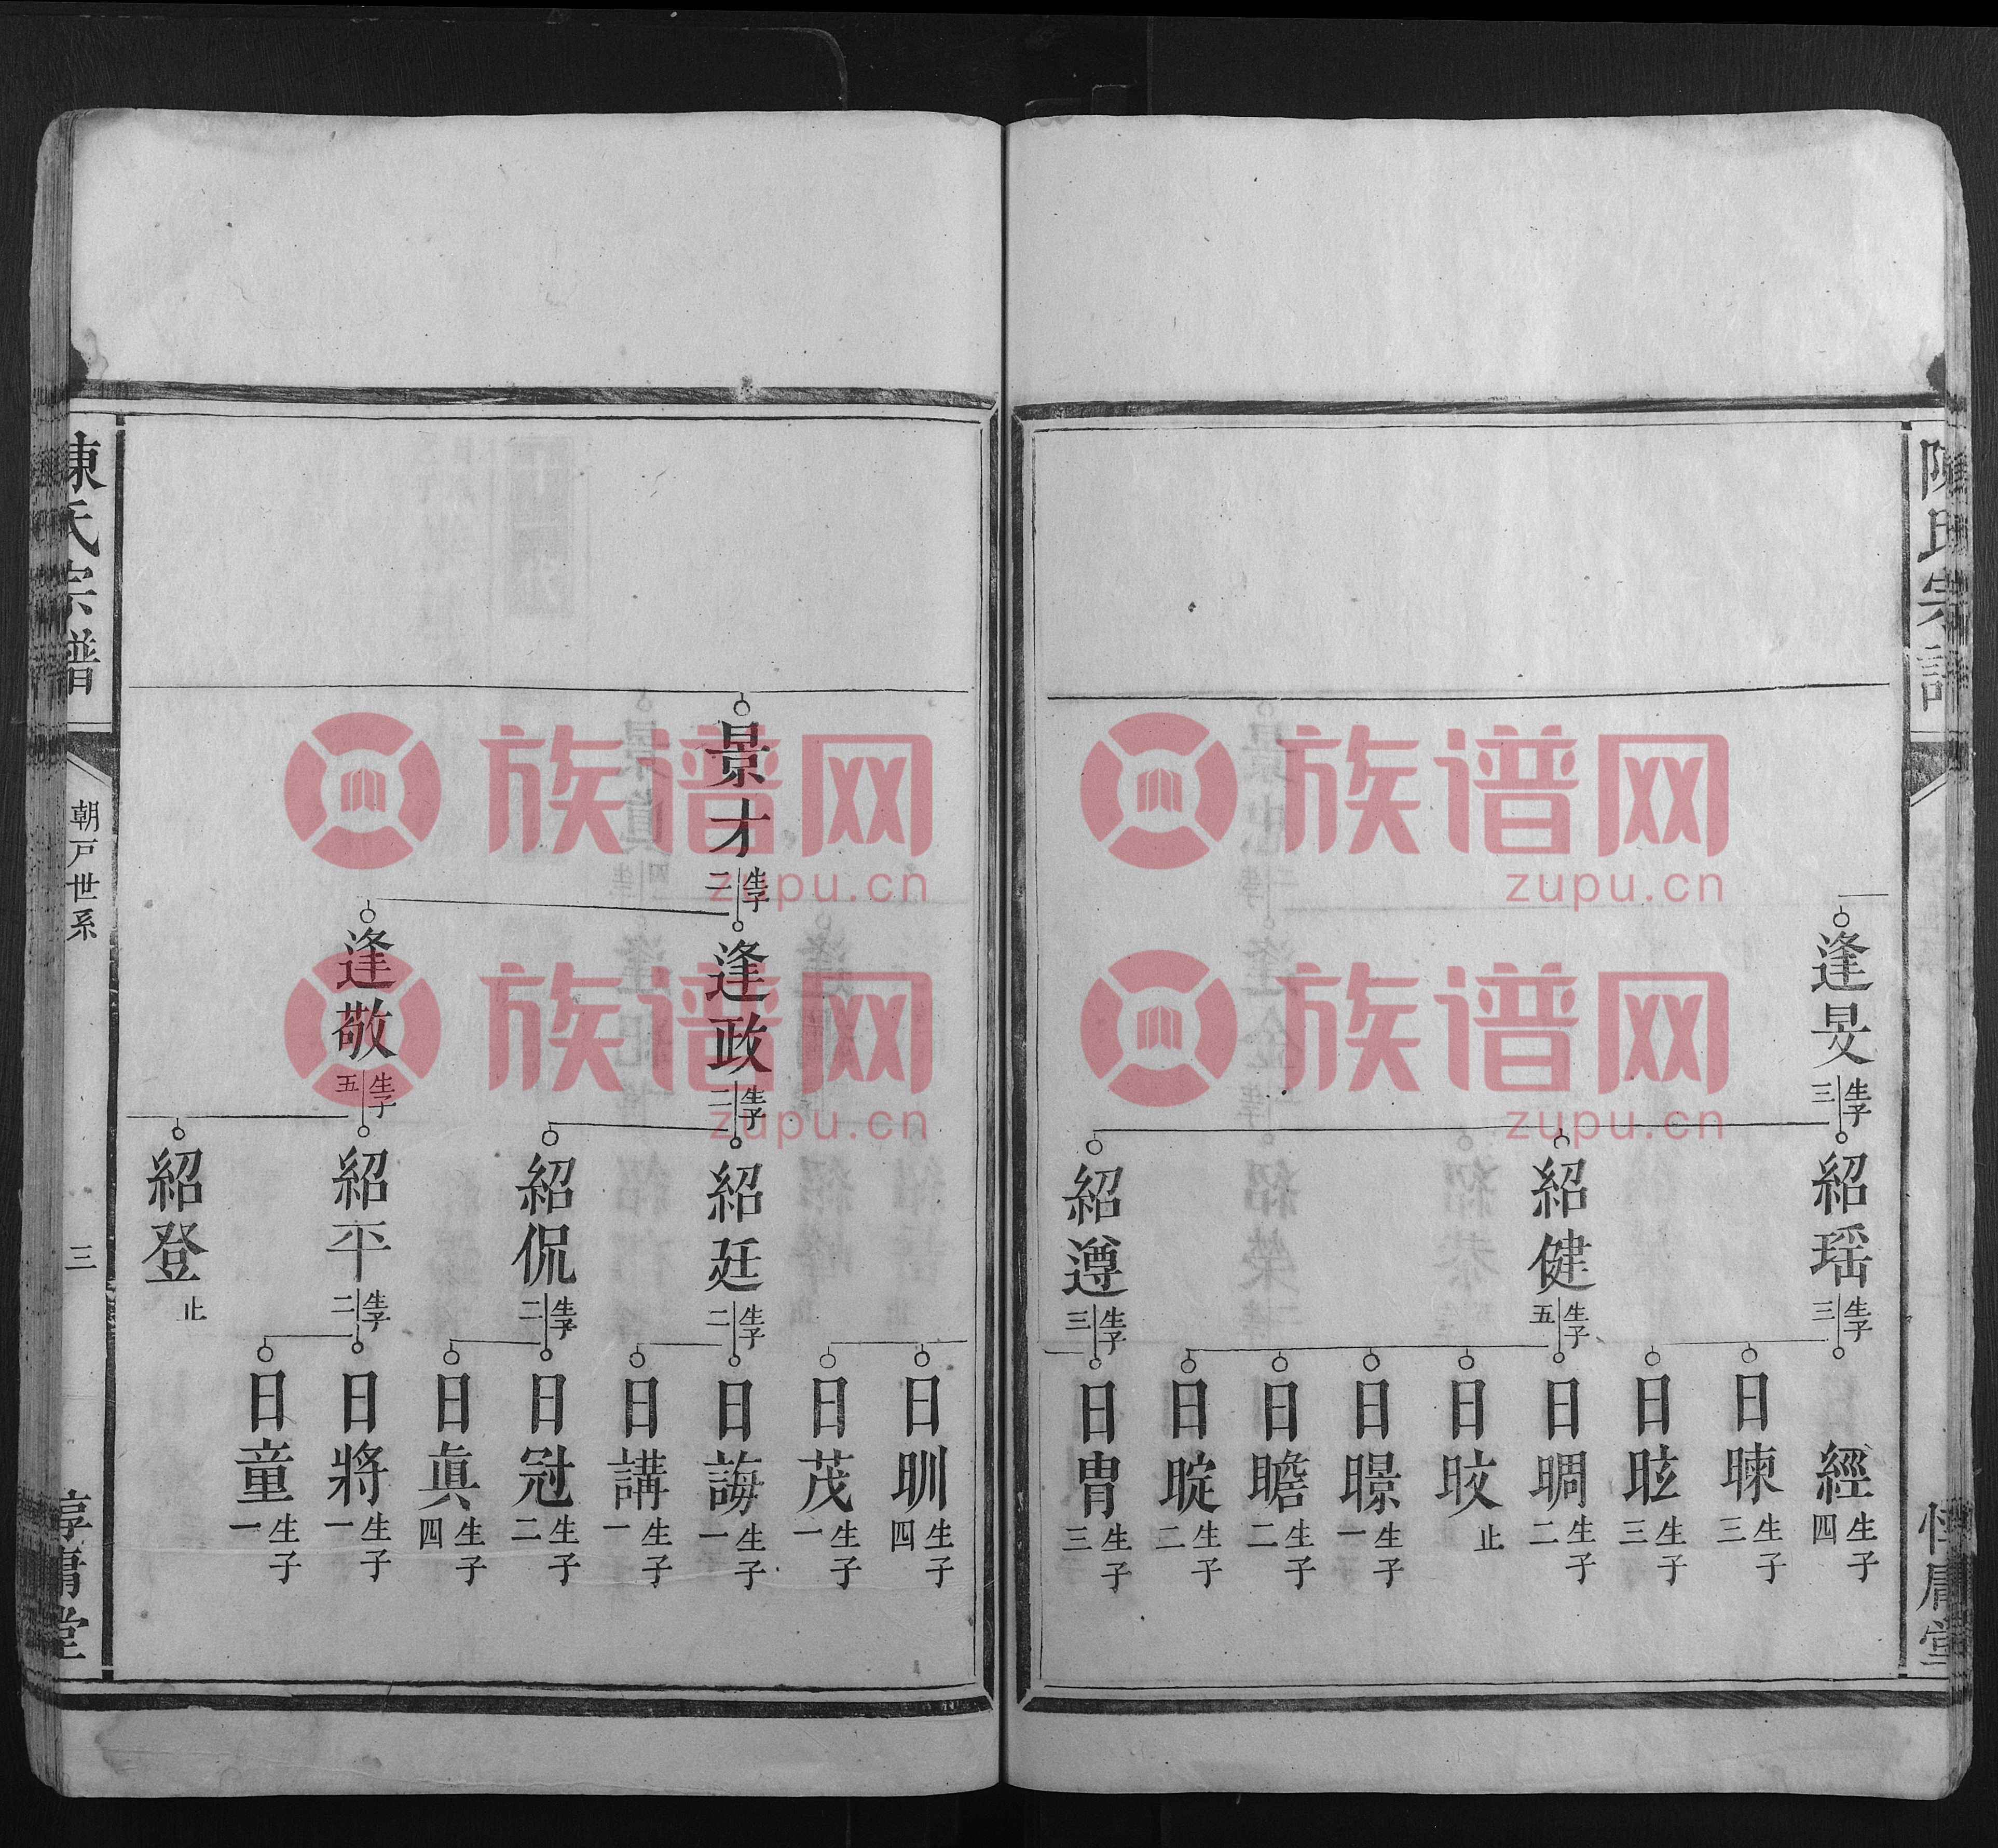 陳氏宗譜
逢旻 生子三
紹瑶 生子三
紹健 生子五
紹遵 生子三
經 生子四
日暕 生子三
日眩 生子三
日晭 生子二
日旼 止
日暻 生子一
日瞻 生子二
日晸 生子二
日胄 生子三
庸堂
日甽 生子四
日茂 生子一
景才 生子二
逢政 生子二
逢敬 生子五
紹廷 生子二
紹侃 生子二
紹平 生子二
紹登 止
日誨 生子一
日講 生子一
日冠 生子二
日眞 生子四
日將 生子一
日童 生子一
陳氏宗譜
朝戸世系
三
惇庸堂
族谱网
zupu.cn
族谱网
zupu.cn
族谱网
zupu.cn
族谱网
zupu.cn